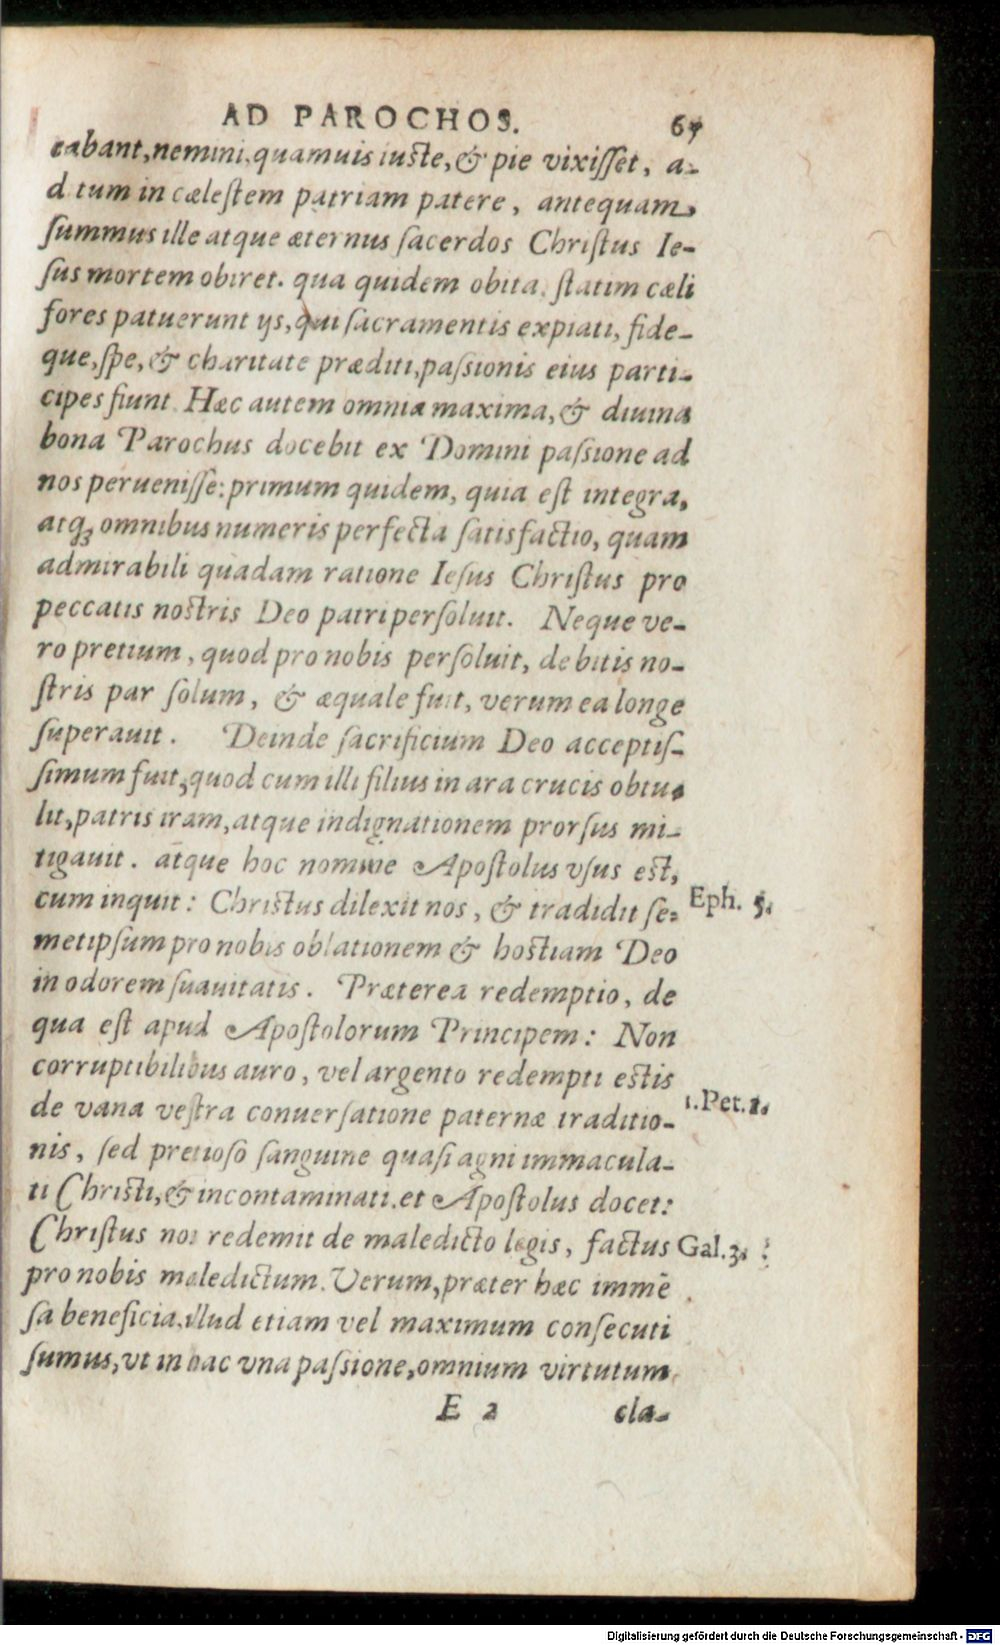 AD PAROCHOS. 67
cabant, nemini, quamuis iuste, & pie vixisset, a-
d tum in cælestem patriam patere, antequam
summus ille atque æternus sacerdos Christus Ie-
sus mortem obiret. qua quidem obita, statim cæli
fores patuerunt ijs, qui sacramentis expiati, fide-
que, spe, & charitate præditi, passionis eius parti-
cipes fiunt. Hæc autem omnia maxima, & diuina
bona Parochus docebit ex Domini passione ad
nos peruenisse: primum quidem, quia est integra,
atqꝫ omnibus numeris perfecta satisfactio, quam
admirabili quadam ratione Iesus Christus pro
peccatis nostris Deo patri persoluit. Neque ve-
ro pretium, quod pro nobis persoluit, debitis no-
stris par solum, & æquale fuit, verum ea longe
superauit. Deinde sacrificium Deo acceptis-
simum fuit, quod cum illi filius in ara crucis obtu-
lit, patris iram, atque indignationem prorsus mi-
tigauit. atque hoc nomine Apostolus vsus est,
cum inquit: Christus dilexit nos, & tradidit se- Eph. 5.
metipsum pro nobis oblationem & hostiam Deo
in odorem suauitatis. Præterea redemptio, de
qua est apud Apostolorum Principem: Non
corruptibilibus auro, vel argento redempti estis
de vana vestra conuersatione paternæ traditio- 1. Pet. 1.
nis, sed pretioso sanguine quasi agni immacula-
ti Christi, & incontaminati. et Apostolus docet:
Christus nos redemit de maledicto legis, factus Gal. 3.
pro nobis maledictum. Verum, præter hæc immē
sa beneficia, illud etiam vel maximum consecuti
sumus, vt in hac vna passione, omnium virtutum
E 2 cla-
Digitalisierung gefördert durch die Deutsche Forschungsgemeinschaft - DFG